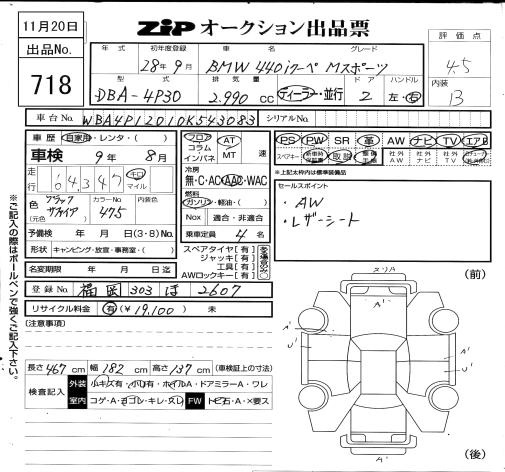 11月20日
ZIP オークション出品票
出品No.
718
年式 初年度登録 車名 グレード
28年9月 BMW 440iクーペ Mスポーツ
型式 排気量 ドア ハンドル
DBA-4P30 2.990 cc ディーラー・並行 2 左・右
評価点
4.5
内装
B
車台No. WBA4P12010K543083 シリアルNo.
車歴 自家用・レンタ・( )
車検 9年 8月
走行 64,347 キロ マイル
色(元色) ブラックサファイア カラーNo. 475 内装色
予備検 年 月 日(3・8)No.
形状 キャンピング・放宣・事務室・( )
名変期限 年 月 日迄
フロア コラム インパネ AT MT 速
冷房
無・C・AC・AAC・WAC
燃料
ガソリン・軽油・( )
Nox 適合・非適合
乗車定員 4 名
スペアタイヤ【有】
ジャッキ【有】
工具【有】
AWロックキー【有】
PS PW SR 革 AW ナビ TV エアB
スペアキー 取説 社外AW 社外ナビ 社外TV
*上記太枠内は標準装備品
セールスポイント
・AW
・レザーシート
登録No. 福岡 303 ほ 2607
リサイクル料金 有(¥19,100) 未
(注意事項)
長さ 467 cm 幅 182 cm 高さ 137 cm (車検証上の寸法)
検査記入 外装 小キズ有・小凹有・ホイルA・ドアミラーA・ワレ
室内 コゲ・A・ヨゴレ・キレ・スレ FW トビ石・A・×要ス
※ご記入の際はボールペンで強くご記入下さい。
(前)
スリA
A'
A'
U'
A'
U'
A'
(後)